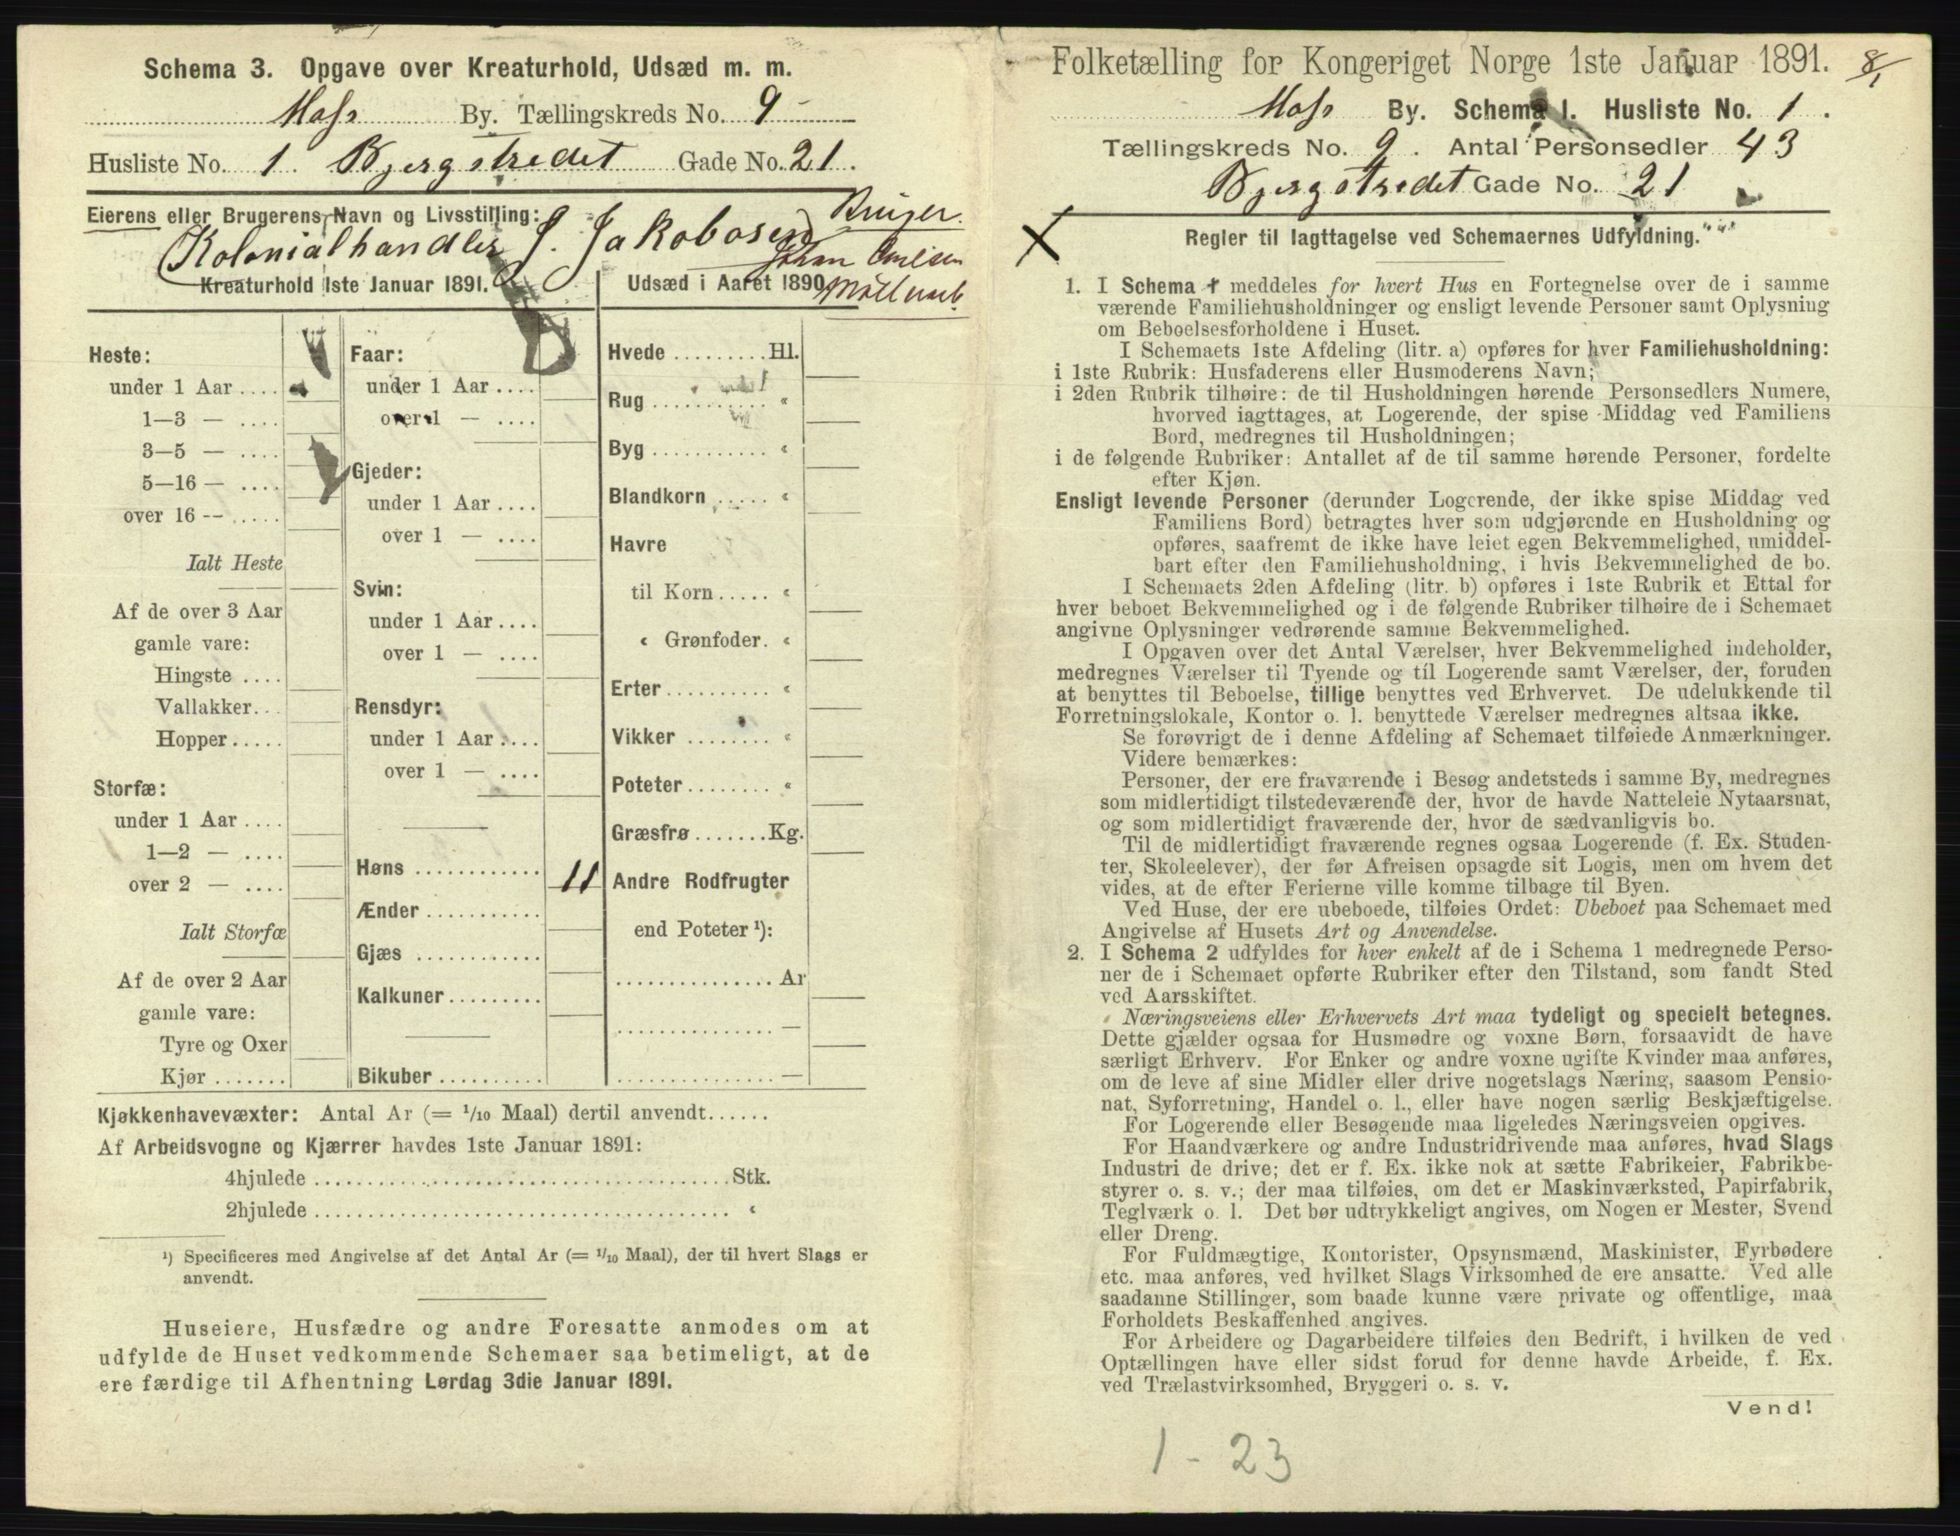 Schema 3. Opgave over Kreaturhold, Udsæd m. m.
Moss By. Tællingskreds No. 9
Husliste No. 1. Bjergstredet Gade No. 21.
Eierens eller Brugerens Navn og Livsstilling:
Kolonialhandler J. Jakobosen
Bruger
Johan
Kreaturhold 1ste Januar 1891.
Udsæd i Aaret 1890
Heste:
under 1 Aar ....
1—3 — ....
3—5 — ....
5—16 — ....
over 16 — .....
Ialt Heste
Af de over 3 Aar
gamle vare:
Hingste ....
Vallakker...
Hopper.....
Storfæ:
under 1 Aar ....
1—2 — ....
over 2 — ....
Ialt Storfæ
Af de over 2 Aar
gamle vare:
Tyre og Oxer
Kjør .......
Faar:
under 1 Aar ....
over 1 — ....
Gjeder:
under 1 Aar ....
over 1 — ....
Svin:
under 1 Aar ....
over 1 — ....
Rensdyr:
under 1 Aar ....
over 1 — ....
Høns ............ 11
Ænder ...........
Gjæs ............
Kalkuner .........
Bikuber ..........
Hvede .........Hl.
Rug ........... «
Byg ........... «
Blandkorn ..... «
Havre
til Korn ..... «
« Grønfoder. «
Erter .......... «
Vikker ........ «
Poteter ........ «
Græsfrø .......Kg.
Andre Rodfrugter
end Poteter ¹):
............... Ar
............... —
............... —
Kjøkkenhavevæxter: Antal Ar (= 1/10 Maal) dertil anvendt......
Af Arbeidsvogne og Kjærrer havdes 1ste Januar 1891:
4hjulede ........................................Stk.
2hjulede ........................................ «
¹) Specificeres med Angivelse af det Antal Ar (= 1/10 Maal), der til hvert Slags er
anvendt.
Huseiere, Husfædre og andre Foresatte anmodes om at
udfylde de Huset vedkommende Schemaer saa betimeligt, at de
ere færdige til Afhentning Lørdag 3die Januar 1891.
Folketælling for Kongeriget Norge 1ste Januar 1891. 8/1
Moss By. Schema I. Husliste No. 1.
Tællingskreds No. 9. Antal Personsedler 43
Bjergstredet Gade No. 21
Regler til Iagttagelse ved Schemaernes Udfyldning.
1. I Schema 1 meddeles for hvert Hus en Fortegnelse over de i samme
værende Familiehusholdninger og ensligt levende Personer samt Oplysning
om Beboelsesforholdene i Huset.
I Schemaets 1ste Afdeling (litr. a) opføres for hver Familiehusholdning:
i 1ste Rubrik: Husfaderens eller Husmoderens Navn;
i 2den Rubrik tilhøire: de til Husholdningen hørende Personsedlers Numere,
hvorved iagttages, at Logerende, der spise Middag ved Familiens
Bord, medregnes til Husholdningen;
i de følgende Rubriker: Antallet af de til samme hørende Personer, fordelte
efter Kjøn.
Ensligt levende Personer (derunder Logerende, der ikke spise Middag ved
Familiens Bord) betragtes hver som udgjørende en Husholdning og
opføres, saafremt de ikke have leiet egen Bekvemmelighed, umiddel-
bart efter den Familiehusholdning, i hvis Bekvemmelighed de bo.
I Schemaets 2den Afdeling (litr. b) opføres i 1ste Rubrik et Ettal for
hver beboet Bekvemmelighed og i de følgende Rubriker tilhøire de i Schemaet
angivne Oplysninger vedrørende samme Bekvemmelighed.
I Opgaven over det Antal Værelser, hver Bekvemmelighed indeholder,
medregnes Værelser til Tyende og til Logerende samt Værelser, der, foruden
at benyttes til Beboelse, tillige benyttes ved Erhvervet. De udelukkende til
Forretningslokale, Kontor o. l. benyttede Værelser medregnes altsaa ikke.
Se forøvrigt de i denne Afdeling af Schemaet tilføiede Anmærkninger.
Videre bemærkes:
Personer, der ere fraværende i Besøg andetsteds i samme By, medregnes
som midlertidigt tilstedeværende der, hvor de havde Natteleie Nytaarsnat,
og som midlertidigt fraværende der, hvor de sædvanligvis bo.
Til de midlertidigt fraværende regnes ogsaa Logerende (f. Ex. Studen-
ter, Skoleelever), der før Afreisen opsagde sit Logis, men om hvem det
vides, at de efter Ferierne ville komme tilbage til Byen.
Ved Huse, der ere ubeboede, tilføies Ordet: Ubeboet paa Schemaet med
Angivelse af Husets Art og Anvendelse.
2. I Schema 2 udfyldes for hver enkelt af de i Schema 1 medregnede Perso-
ner de i Schemaet opførte Rubriker efter den Tilstand, som fandt Sted
ved Aarsskiftet.
Næringsveiens eller Erhvervets Art maa tydeligt og specielt betegnes.
Dette gjælder ogsaa for Husmødre og voxne Børn, forsaavidt de have
særligt Erhverv. For Enker og andre voxne ugifte Kvinder maa anføres,
om de leve af sine Midler eller drive nogetslags Næring, saasom Pensio-
nat, Syforretning, Handel o. l., eller have nogen særlig Beskjæftigelse.
For Logerende eller Besøgende maa ligeledes Næringsveien opgives.
For Haandværkere og andre Industridrivende maa anføres, hvad Slags
Industri de drive; det er f. Ex. ikke nok at sætte Fabrikeier, Fabrikbe-
styrer o. s. v.; der maa tilføies, om det er Maskinværksted, Papirfabrik,
Teglværk o. l. Det bør udtrykkeligt angives, om Nogen er Mester, Svend
eller Dreng.
For Fuldmægtige, Kontorister, Opsynsmænd, Maskinister, Fyrbødere
etc. maa anføres, ved hvilket Slags Virksomhed de ere ansatte. Ved alle
saadanne Stillinger, som baade kunne være private og offentlige, maa
Forholdets Beskaffenhed angives.
For Arbeidere og Dagarbeidere tilføies den Bedrift, i hvilken de ved
Optællingen have eller sidst forud for denne havde Arbeide, f. Ex.
ved Trælastvirksomhed, Bryggeri o. s. v.
Vend!
1 - 23